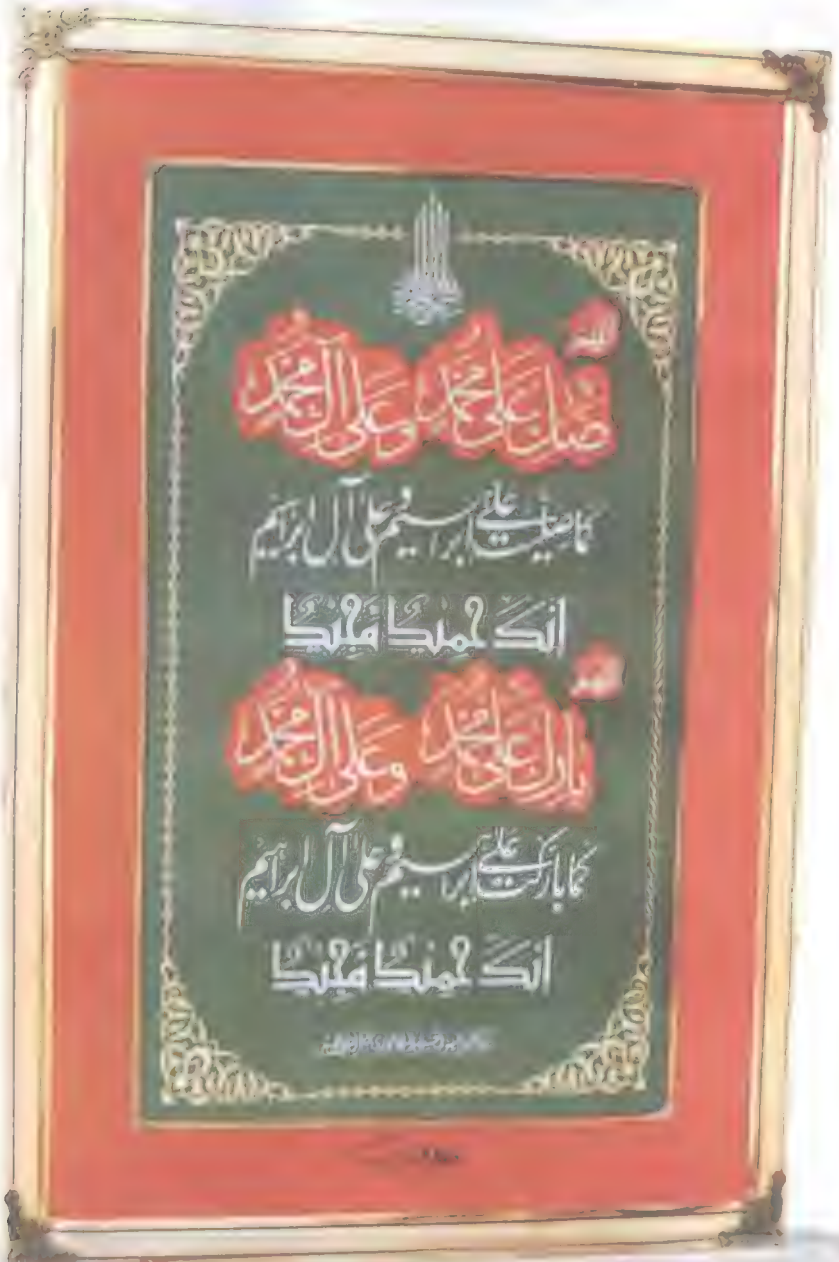 اللهم
صل على محمد وعلى آل محمد
كما صليت على ابراهيم وعلى آل ابراهيم
انك حميد مجيد
اللهم
بارك على محمد وعلى آل محمد
كما باركت على ابراهيم وعلى آل ابراهيم
انك حميد مجيد